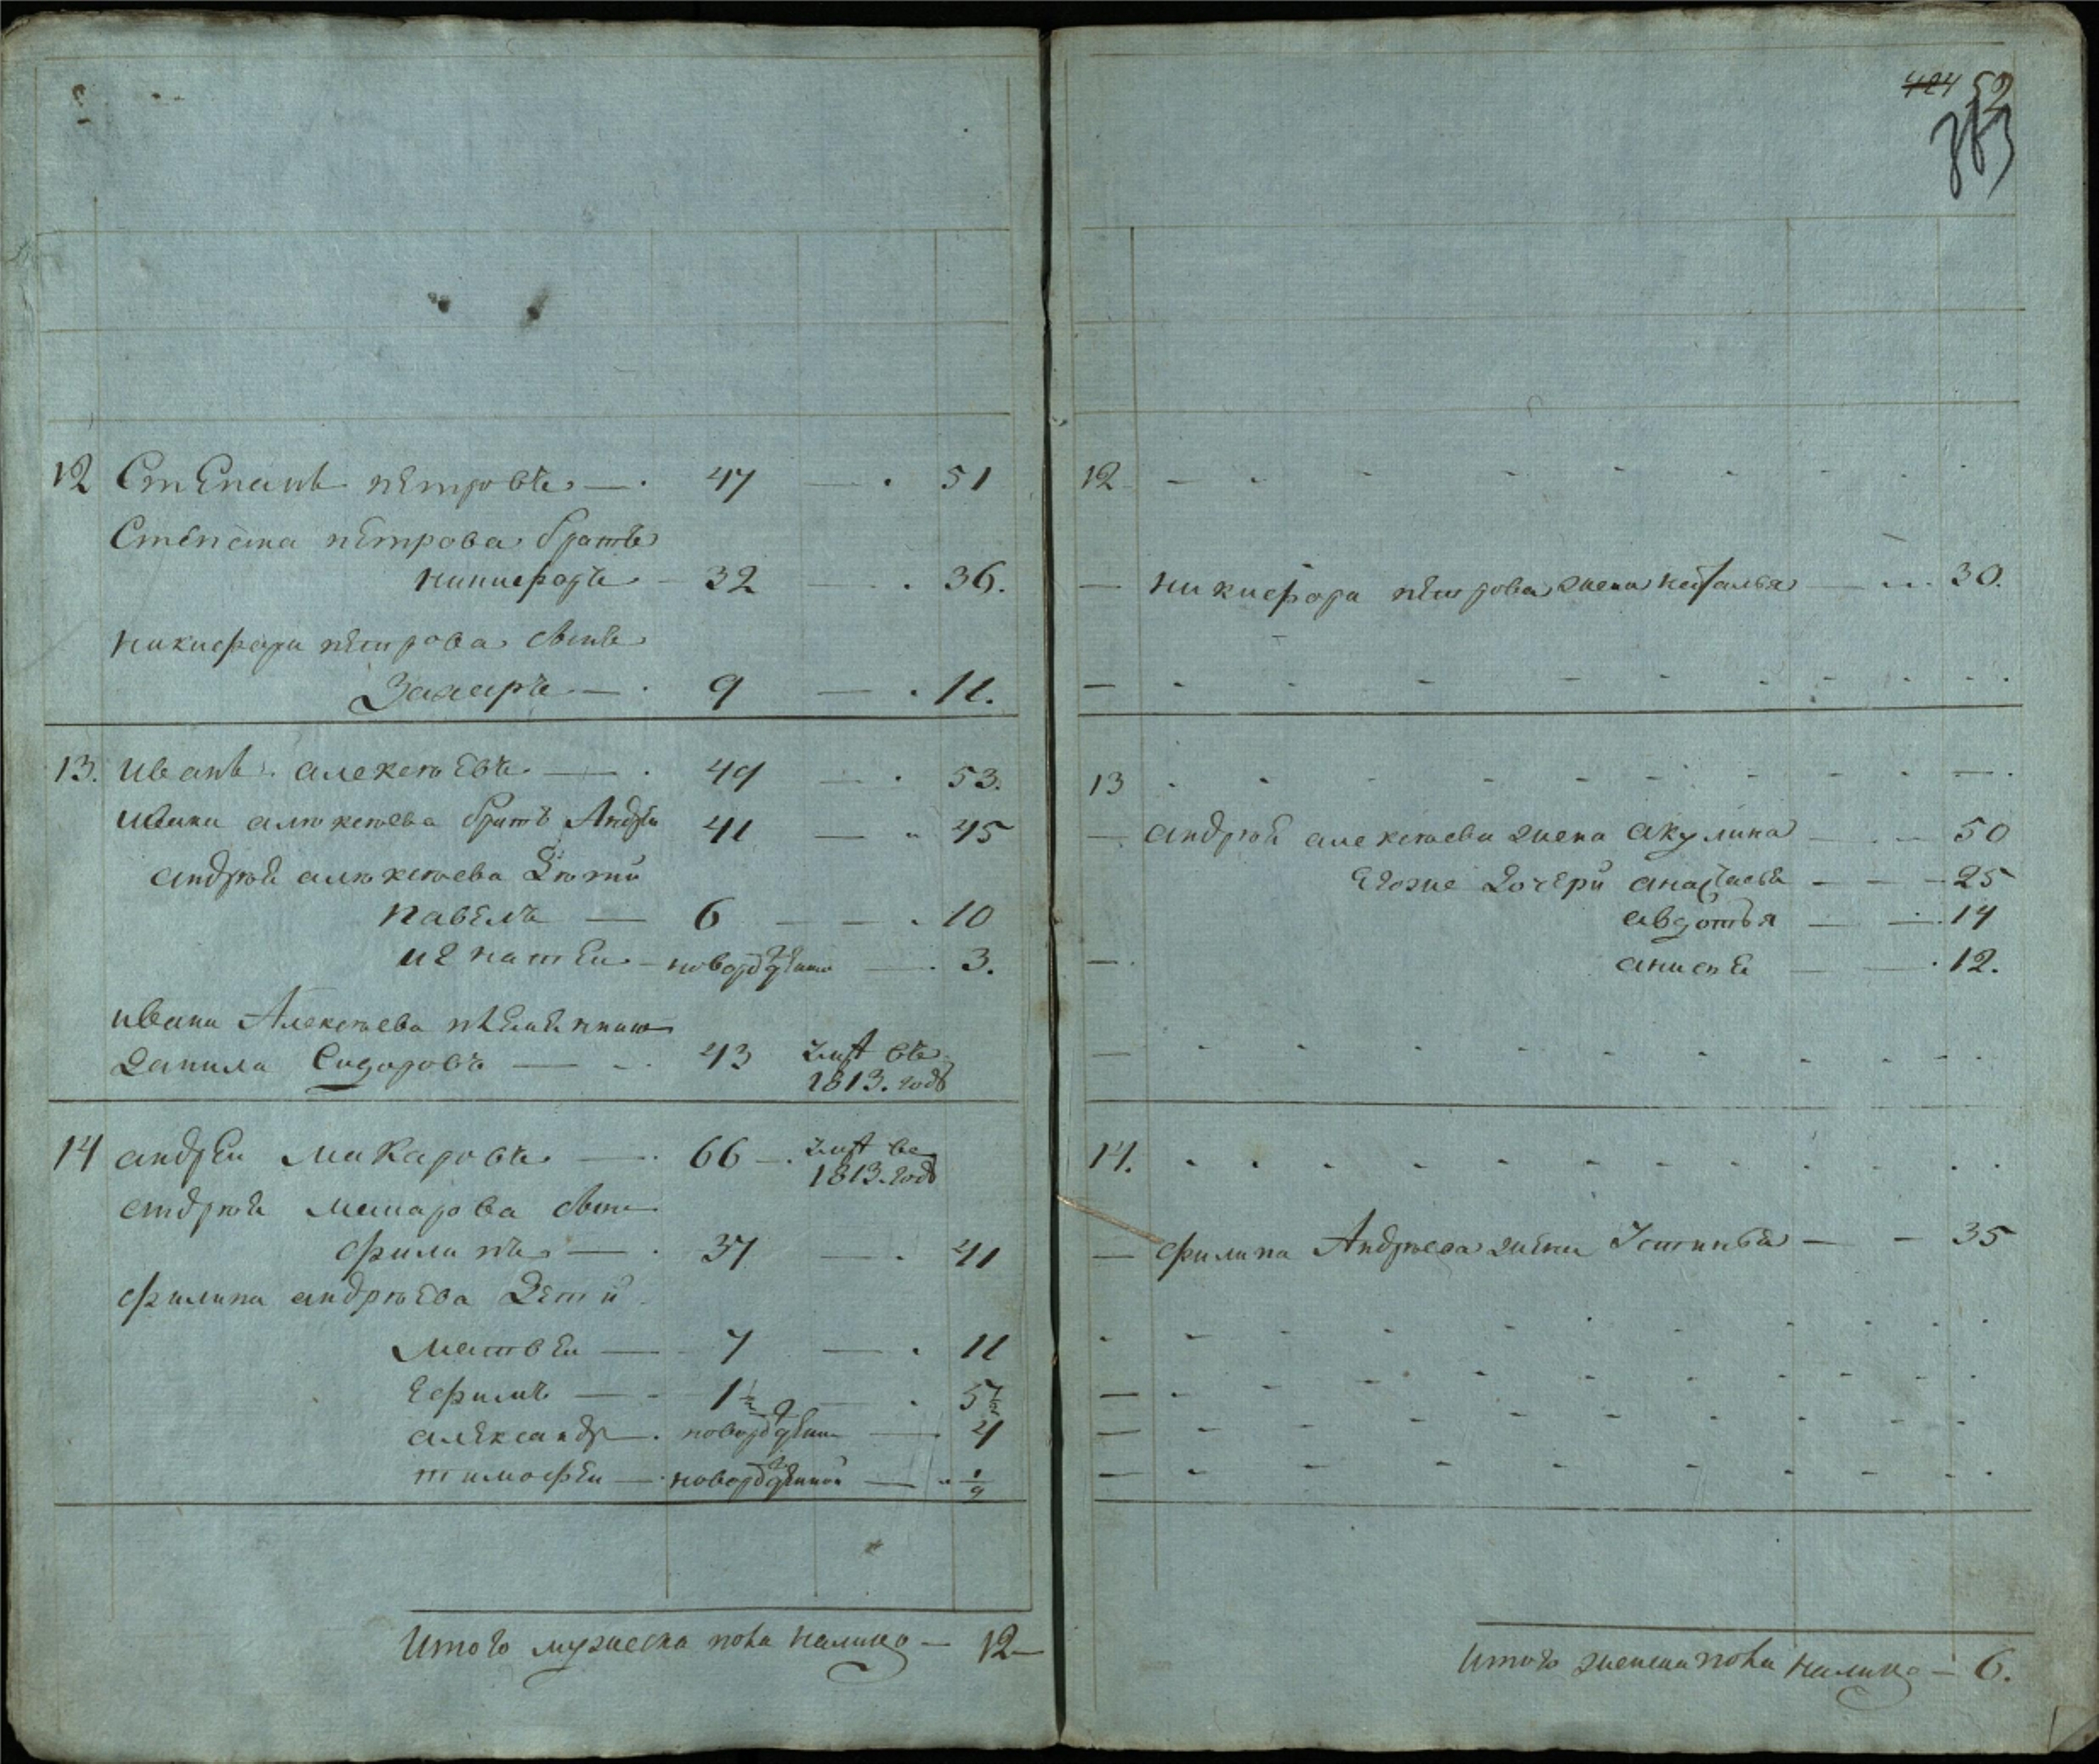 12 Степанъ петровъ — 47 — 51
Степана петрова братъ
никифоръ — 32 — 36.
никифора петрова сынъ
Захаръ — 9 — 11.
13. иванъ алексѣевъ — 49 — 53.
ивана алѣксѣева братъ Андрей 41 — 45
андрѣй алѣксѣева Дѣти
павелъ — 6 — 10
игнатей — новорожденъ — 3.
ивана Алексѣева племенникъ
Данила Сидоровъ — 43 въ
1813. годѣ
14 андрей Макаровъ — 66 — в
1813. годѣ
андрѣй макарова сынъ
филипъ — 37 — 41
филипа андрѣева Дети
матвей — 7 — 11
Ефимъ — 1½ — 5½
александр — новорожден — 4
тимофей — новорожденной — 1/9
Итого мужеска пола налицо — 12 —
424 52
353
12
— никифора петрова жена наталья — 30.
13
— андрѣй алексѣева жена акулина — 50
Его же Дочери анастасья — 25
авдотья — 14
—. анисья — 12.
14.
— филипа Андрѣева жена Устинья — 35
Итого женска пола налицо — 6.